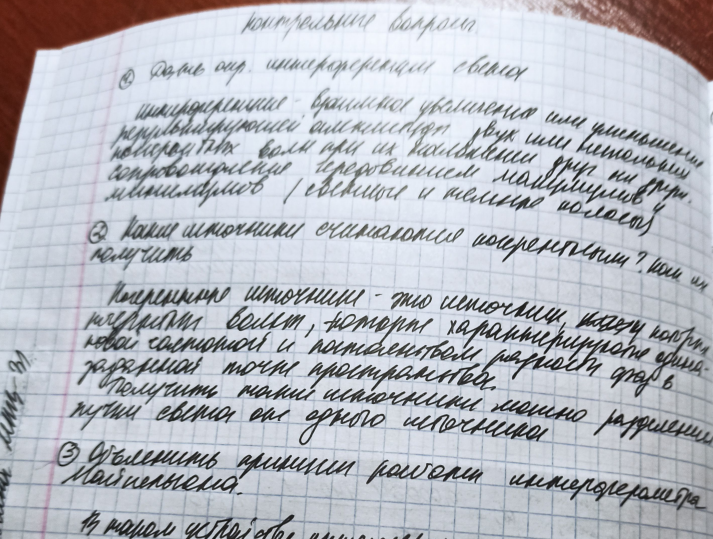 Контрольные вопросы
① Дать опр. интерференции света
интерференция - взаимное увеличение или уменьшение
результирующей амплитуды двух или нескольких
когерентных волн при их наложении друг на друга.
сопровождение чередованием максимумов и
минимумов (светлые и темные полосы)
② Какие источники считаются когерентными? как их
получить
Когерентные источники - это источники,
волны, которые характеризуются одина-
ковой частотой и постоянством разности фаз в
заданной точке пространства.
Получить такие источники можно разделением
пучка света от одного источника
③ Объяснить принцип работы интерферометра
Майкельсона.
В таком устройстве